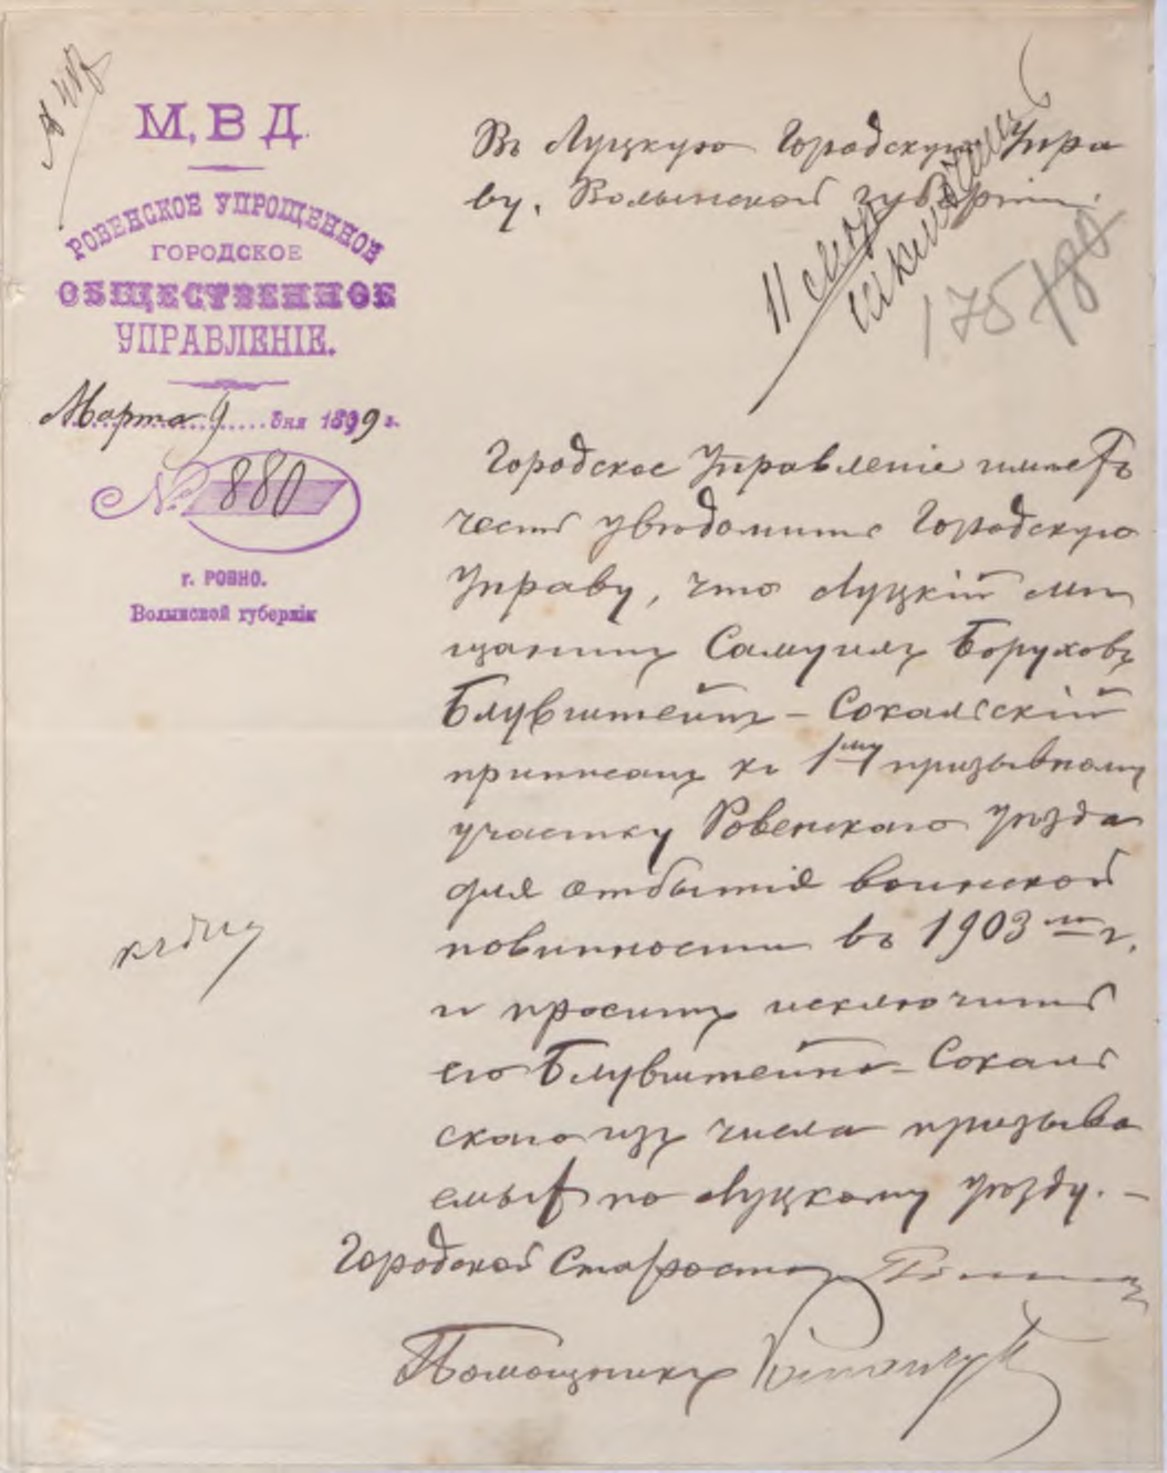 М,В Д.
РОВЕНСКОЕ УПРОЩЕННОЕ
ГОРОДСКОЕ
ОБЩЕСТВЕННОЕ
УПРАВЛЕНІЕ.
Марта 9 дня 1899 г.
№ 880
г. РОВНО.
Волынской губерніи
Въ Луцкую Городскую Упра
ву, Волынской губерніи.
11 мар
175 180
Городское Управленіе имѣетъ
честь увѣдомить Городскую
Управу, что Луцкій мѣ
щанинъ Самуилъ Боруховъ
Блувштейнъ - Сокальскій
приписанъ къ 1му призывному
участку Ровенскаго уѣзда
для отбытія воинской
повинности въ 1903 м г.
и проситъ исключить
его Блувштейна - Сокаль
скаго изъ числа призыва
емыхъ по Луцкому уѣзду. -
Городской Староста
Помощникъ
къ дѣлу